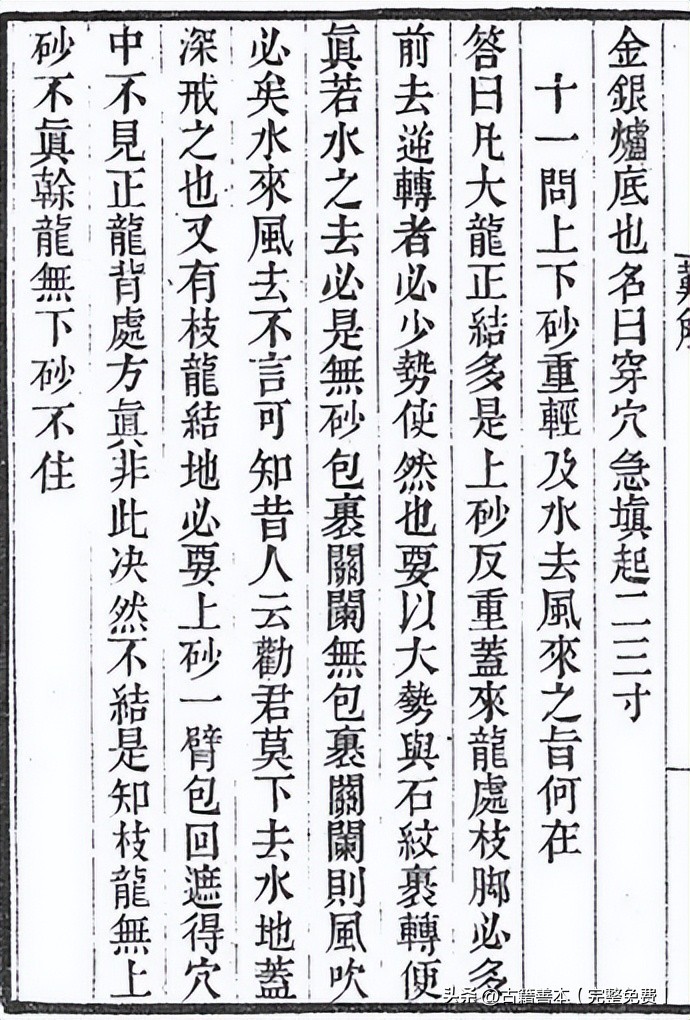 金銀爐底也名曰穿穴急塡起二三寸
十一問上下砂重輕及水去風來之旨何在
答曰凡大龍正結多是上砂反重蓋來龍處枝脚必多
前去逆轉者必少勢使然也要以大勢與石紋裹轉便
眞若水之去必是無砂包裹關闌無包裹關闌則風吹
必矣水來風去不言可知昔人云勸君莫下去水地蓋
深戒之也又有枝龍結地必要上砂一臂包回遮得穴
中不見正龍背處方眞非此决然不結是知枝龍無上
砂不眞榦龍無下砂不住
头条 @古籍善本（完整免费